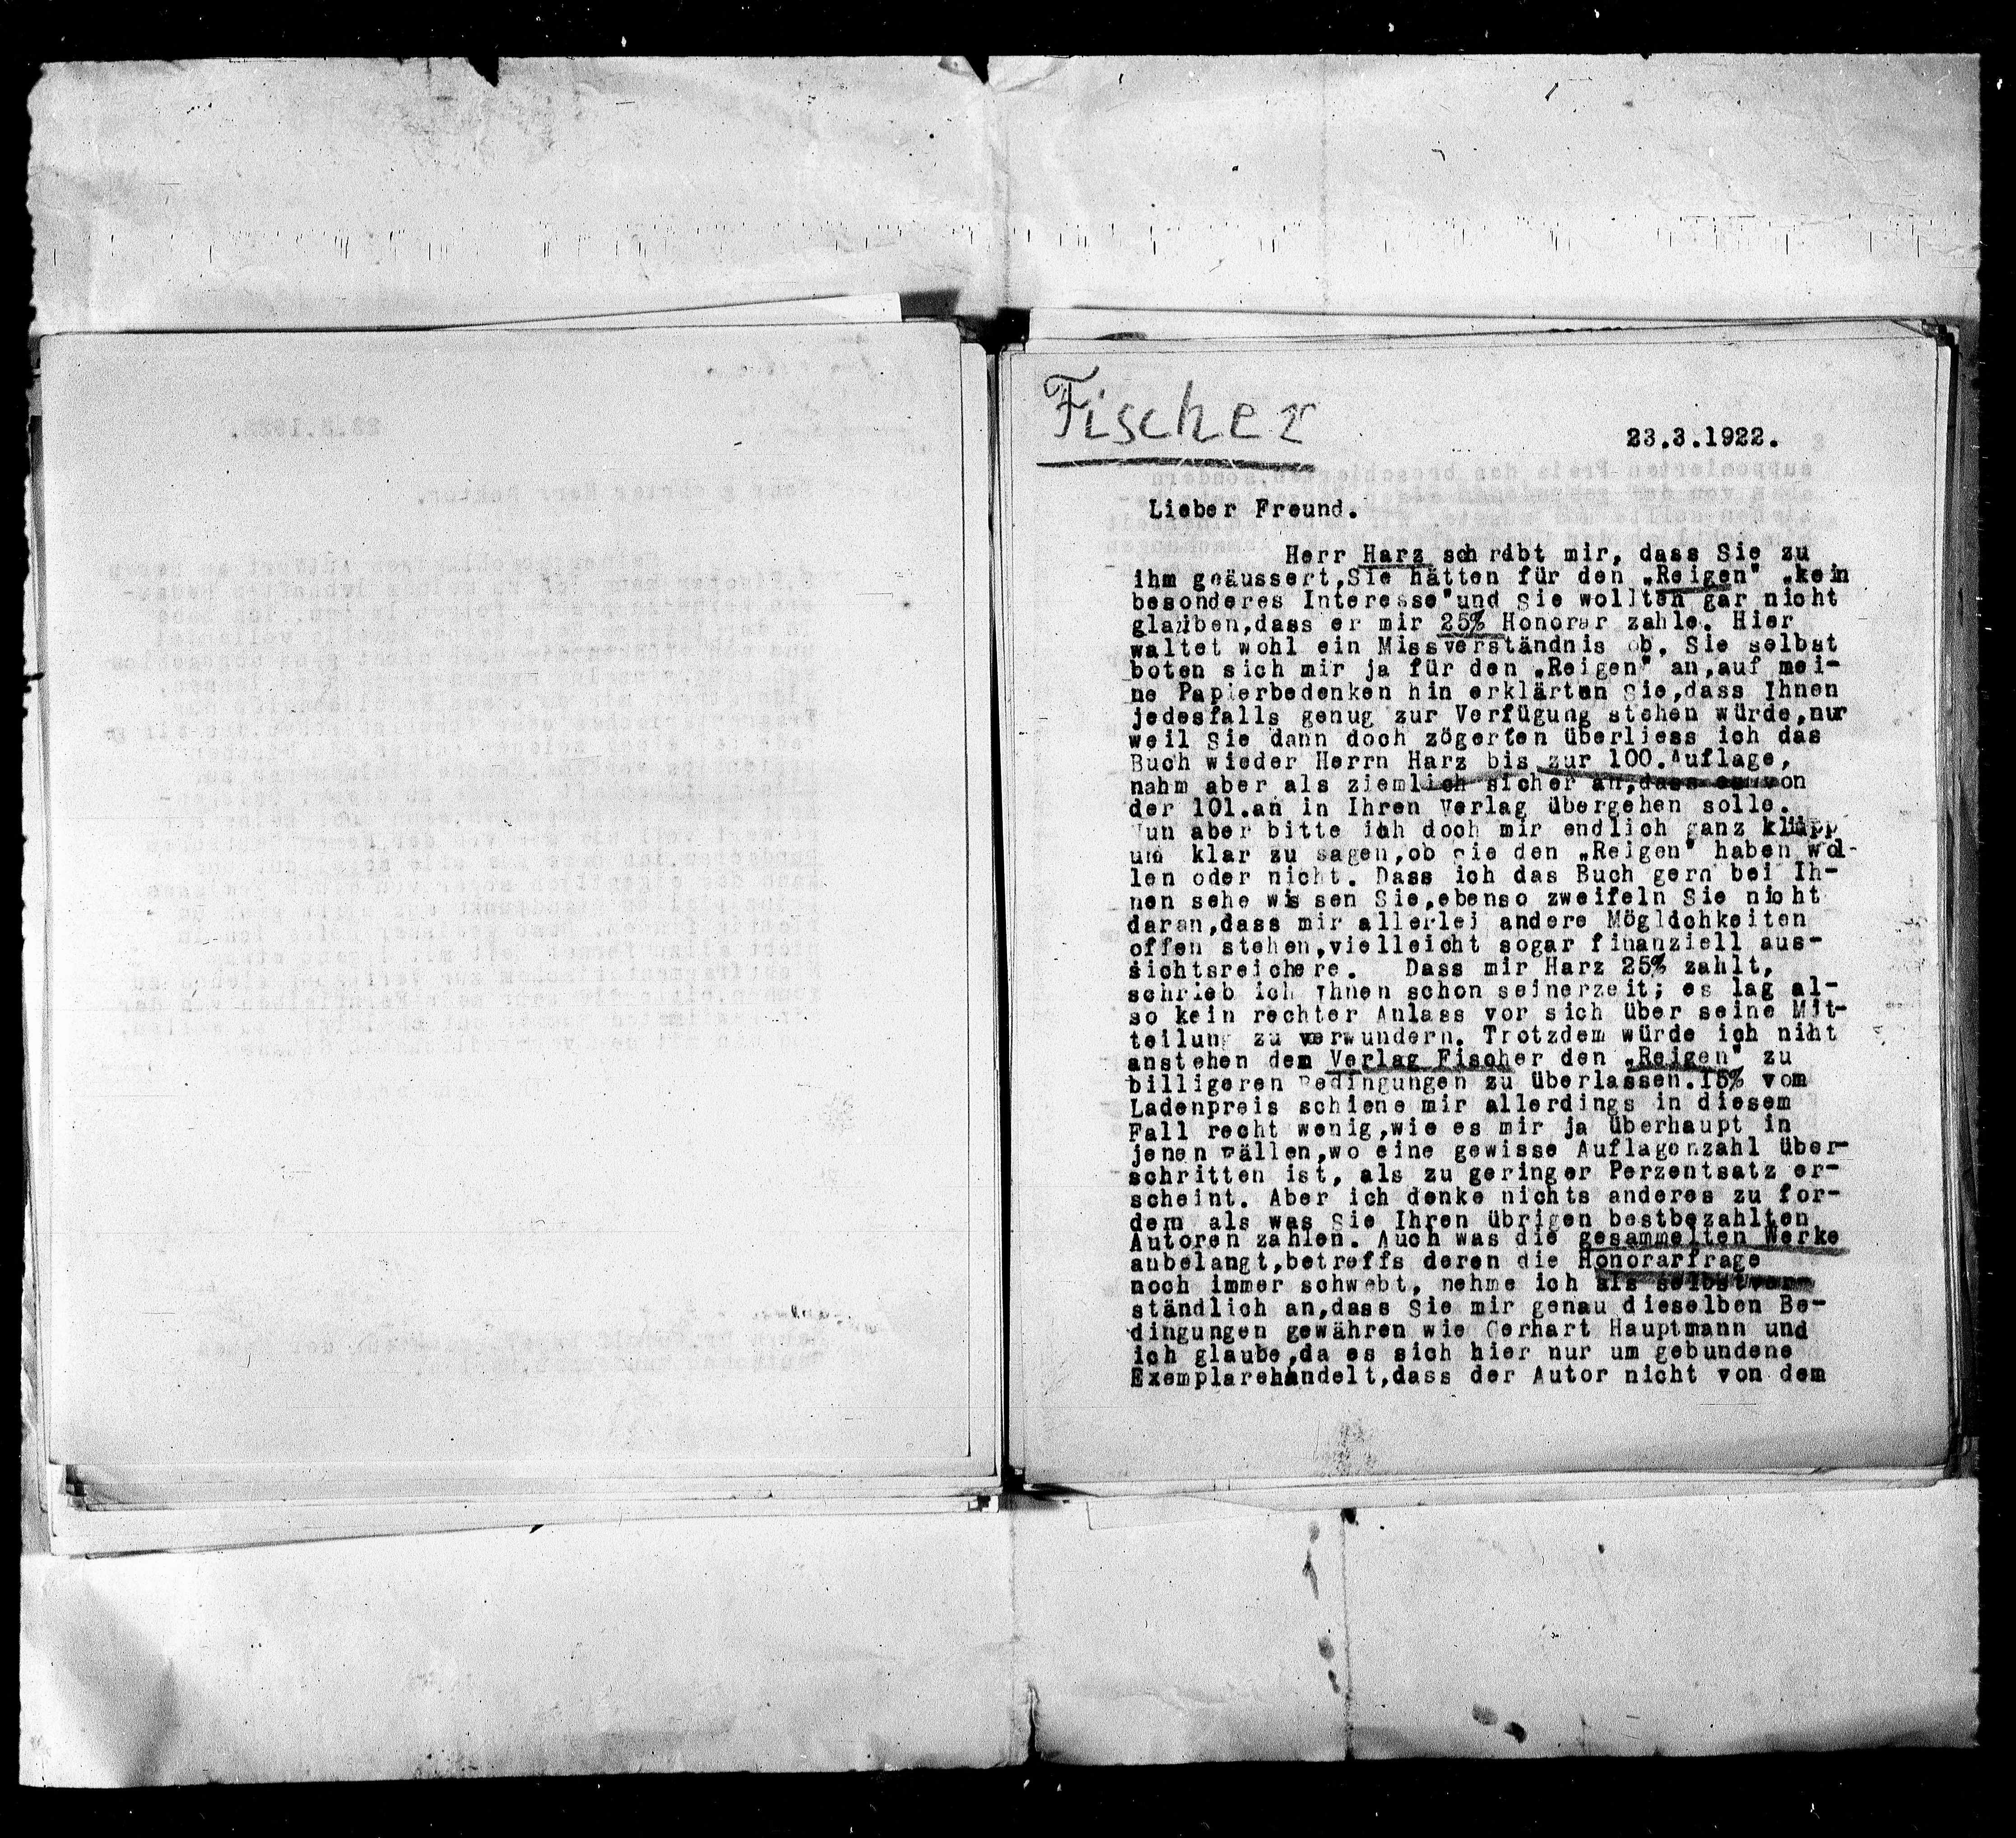 Fischer
23.3.1922.
Lieber Freund.
Herr Harz schräbt mir, dass Sie zu
ihm geäussert,Sie hätten für den „Reigen" „kein
besonderes Interesse"und Sie wollten gar nicht
glauben,dass er mir 25% Honorar zahle. Hier
waltet wohl ein Missverständnis ob. Sie selbst
boten sich mir ja für den „Reigen" an,auf mei-
ne Papierbedenken hin erklärten Sie,dass Ihnen
jedesfalls genug zur Verfügung stehen würde,nur
weil Sie dann doch zögerten überliess ich das
Buch wieder Herrn Harz bis zur 100.Auflage,
nahm aber als ziemlich sicher an,dass es von
der 101.an in Ihren Verlag übergehen solle.
Nun aber bitte ich doch mir endlich ganz klipp
und klar zu sagen,ob Sie den „Reigen" haben wol-
len oder nicht. Dass ich das Buch gern bei Ih-
nen sehe wissen Sie,ebenso zweifeln Sie nicht
daran,dass mir allerlei andere Möglichkeiten
offen stehen,vielleicht sogar finanziell aus-
sichtsreichere. Dass mir Harz 25% zahlt,
schrieb ich Ihnen schon seinerzeit; es lag al-
so kein rechter Anlass vor sich über seine Mit-
teilung zu verwundern. Trotzdem würde ich niht
anstehen dem Verlag Fischer den „Reigen" zu
billigeren Bedingungen zu überlassen.15% vom
Ladenpreis schiene mir allerdings in diesem
Fall recht wenig,wie es mir ja überhaupt in
jenen Fällen,wo eine gewisse Auflagenzahl über-
schritten ist, als zu geringer Perzentsatz er-
scheint. Aber ich denke nichts anderes zu for-
dern als was Sie Ihren übrigen bestbezahlten
Autoren zahlen. Auch was die gesammelten Werke
anbelangt,betreffs deren die Honorarfrage
noch immer schwebt, nehme ich als selbstver-
ständlich an,dass Sie mir genau dieselben Be-
dingungen gewähren wie Gerhart Hauptmann und
ich glaube,da es sich hier nur um gebundene
Exemplarehandelt,dass der Autor nicht von dem